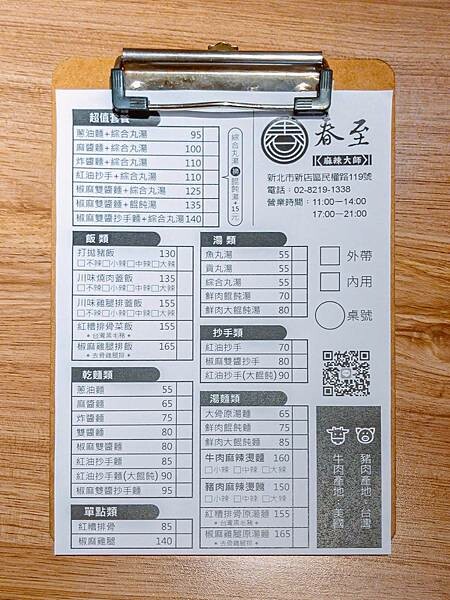 超值套餐
蔥油麵+綜合丸湯 95
麻醬麵+綜合丸湯 100
炸醬麵+綜合丸湯 110
紅油抄手+綜合丸湯 110
椒麻雙醬麵+綜合丸湯 125
椒麻雙醬麵+餛飩湯 135
椒麻雙醬抄手麵+綜合丸湯 140
綜合丸湯換餛飩湯+15元
春至
【麻辣大師】
新北市新店區民權路119號
電話:02-8219-1338
營業時間:11:00-14:00
17:00-21:00
飯類
打拋豬飯 130
□不辣□小辣□中辣□大辣
川味燒肉蓋飯 135
□不辣□小辣□中辣□大辣
川味雞腿排蓋飯 155
□不辣□小辣□中辣□大辣
紅糟排骨菜飯 155
★台灣黑毛豬★
椒麻雞腿排飯 165
★去骨雞腿排★
湯類
魚丸湯 55
貢丸湯 55
綜合丸湯 55
鮮肉餛飩湯 70
鮮肉大餛飩湯 80
□外帶
□內用
○桌號
抄手類
紅油抄手 70
椒麻雙醬抄手 80
紅油抄手(大餛飩) 90
乾麵類
蔥油麵 55
麻醬麵 65
炸醬麵 75
雙醬麵 80
椒麻雙醬麵 80
紅油抄手麵 85
紅油抄手麵(大餛飩) 90
椒麻雙醬抄手麵 95
湯麵類
大骨原湯麵 65
鮮肉餛飩麵 75
鮮肉大餛飩麵 85
牛肉麻辣燙麵 160
□小辣 □中辣 □大辣
豬肉麻辣燙麵 150
□小辣 □中辣 □大辣
紅糟排骨原湯麵 155
★台灣黑毛豬★
椒麻雞腿原湯麵 165
★去骨雞腿排★
單點類
紅糟排骨 85
椒麻雞腿 140
豬肉產地 台灣
牛肉產地 美國